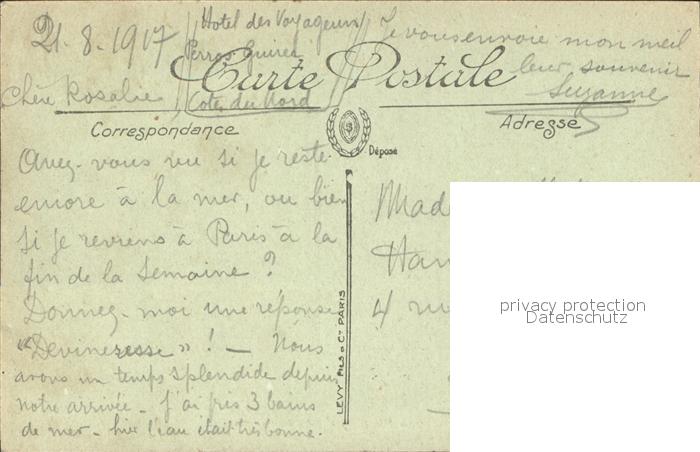 21.8.1917
Hotel des Voyageurs
Perros Guirec
Côtes du Nord
Je vous envoie mon meil
leur souvenir
Suzanne
Carte Postale
Chère Rosalie
Correspondance
Adresse
Déposé
Avez-vous vu si je reste
encore à la mer, ou bien
si je reviens à Paris à la
fin de la semaine ?
Donnez-moi une réponse
"Devineresse" ! — Nous
avons un temps splendide depuis
notre arrivée - J'ai pris 3 bains
de mer - hier l'eau était très bonne.
LEVY FILS & Cie PARIS
Mad
Ham
4 ru
privacy protection
Datenschutz